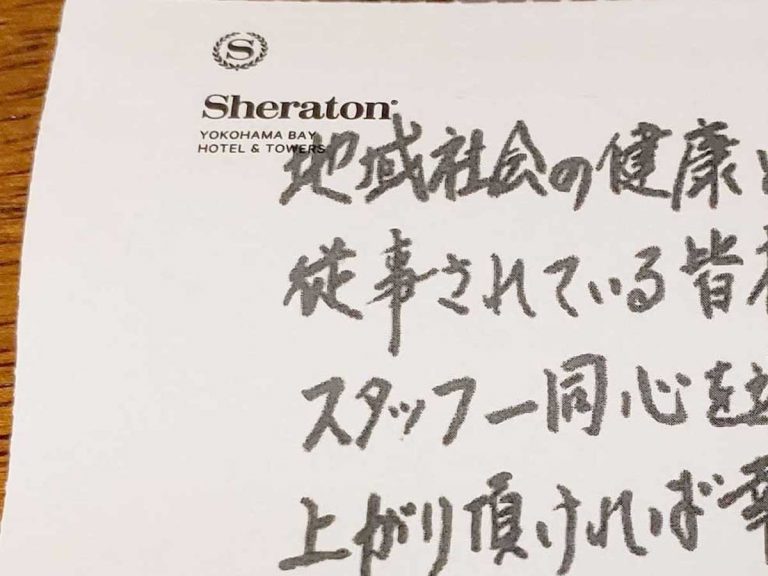 S
Sheraton®
YOKOHAMA BAY
HOTEL & TOWERS
地域社会の健康
従事されている皆
スタッフ一同心を
上がり頂ければ幸